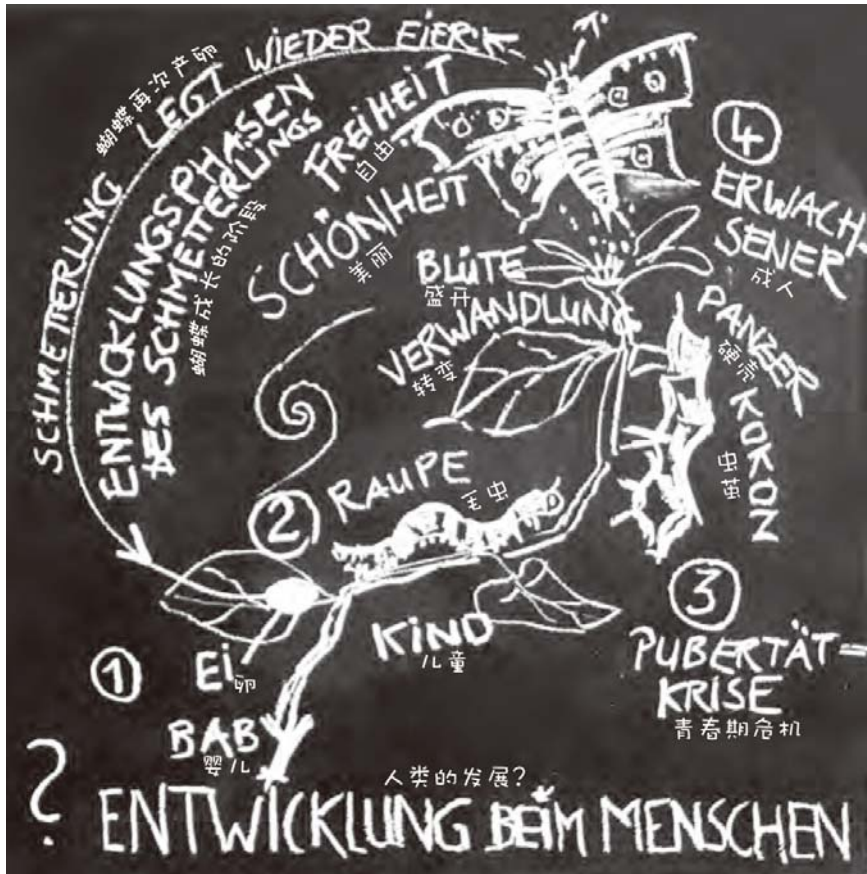 SCHMETTERLING LEGT WIEDER EIER
蝴蝶再次产卵
ENTWICKLUNGSPHASEN
DES SCHMETTERLINGS
蝴蝶成长的阶段
FREIHEIT
自由
SCHÖNHEIT
美丽
BLÜTE
盛开
VERWANDLUNG
转变
④
ERWACH
SENER
成人
PANZER
硬壳
KOKON
虫茧
②
RAUPE
毛虫
KIND
儿童
③
PUBERTÄT=
KRISE
青春期危机
①
Ei
卵
BABY
婴儿
人类的发展?
? ENTWICKLUNG BEIM MENSCHEN